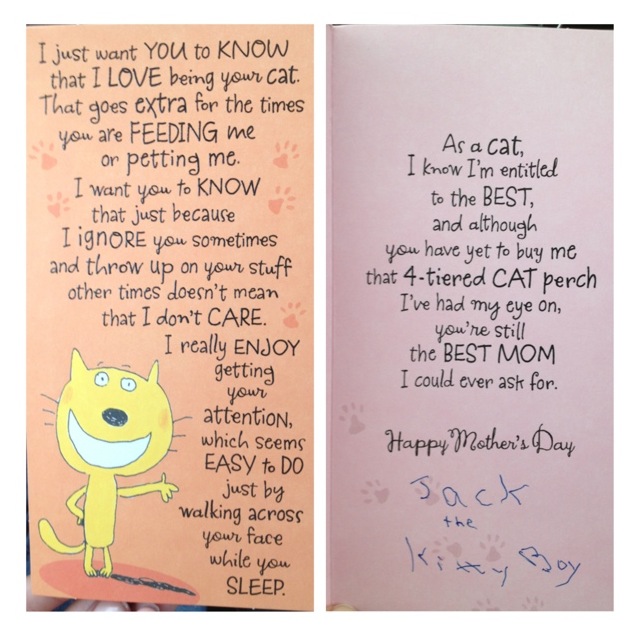 I just want YOU to KNOW
that I LOVE being your cat.
That goes extra for the times
you are FEEDING me
or petting me.
I want you to KNOW
that just because
I IGNORE you sometimes
and throw up on your stuff
other times doesn't mean
that I don't CARE.
I really ENJOY
getting
your
attention,
which seems
EASY to DO
just by
walking across
your face
while you
SLEEP.
As a cat,
I know I'm entitled
to the BEST,
and although
you have yet to buy me
that 4-tiered CAT perch
I've had my eye on,
you're still
the BEST MOM
I could ever ask for.
Happy Mother's Day
Jack
the
Kitty Boy